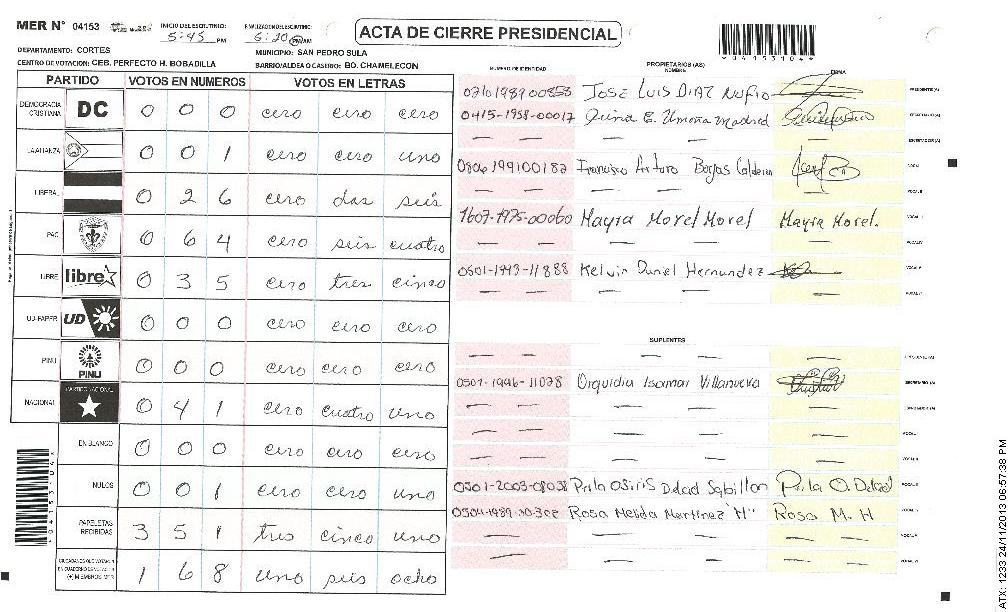 MER N° 04153
INICIO DEL ESCRUTINIO: 5:45 PM
FINALIZACION DEL ESCRUTINIO: 6:20 PM AM
ACTA DE CIERRE PRESIDENCIAL
*04153104*
DEPARTAMENTO: CORTES
MUNICIPIO: SAN PEDRO SULA
CENTRO DE VOTACION: CEB. PERFECTO H. BOBADILLA
BARRIO/ALDEA O CASERIO: BO. CHAMELECON
PARTIDO VOTOS EN NUMEROS VOTOS EN LETRAS
DEMOCRACIA CRISTIANA DC 0 0 0 cero cero cero
LA ALIANZA 0 0 1 cero cero uno
LIBERAL 0 2 6 cero dos seis
PAC 0 6 4 cero seis cuatro
LIBRE libre 0 3 5 cero tres cinco
UD-FAPER UD 0 0 0 cero cero cero
PINU PINU 0 0 0 cero cero cero
NACIONAL PARTIDO NACIONAL 0 4 1 cero cuatro uno
EN BLANCO 0 0 0 cero cero cero
NULOS 0 0 1 cero cero uno
PAPELETAS RECIBIDAS 3 5 1 tres cinco uno
CIUDADANOS QUE VOTARON EN CUADERNO DE VOTACION (+) MIEMBROS MER 1 6 8 uno seis ocho
*04153104*
NUMERO DE IDENTIDAD PROPIETARIOS (AS) NOMBRE FIRMA
Jose Luis Diaz Nufio PRESIDENTE(A)
0415-1958-00017 Umaña Madrid SECRETARIO(A)
ESCRUTADOR (A)
Francisco Arturo Borjas Calderon VOCAL I
VOCAL II
1607-1975-00060 Mayra Morel Morel Mayra Morel. VOCAL III
VOCAL IV
0501-1993-11888 Kelvin Daniel Hernandez VOCAL V
VOCAL VI
SUPLENTES
PRESIDENTE(A)
0501-1996-11078 Orquidia Isamar Villanueva SECRETARIO (A)
ESCRUTADOR (A)
VOCAL I
VOCAL II
Perla Osiris Delcid Sabillon Perla O. Delcid VOCAL III
Rosa Melida Martinez H" Rosa M. H VOCAL IV
VOCAL V
VOCAL VI
ATX: 1233 24/11/2013 06:57:38 PM